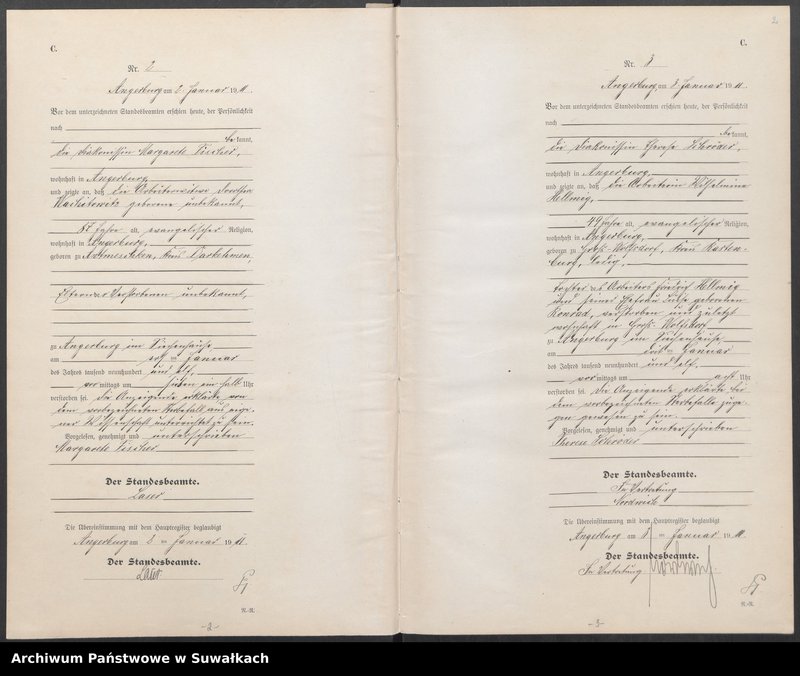 C.
Nr. 2
Angerburg am 2. Januar 1911.
Vor dem unterzeichneten Standesbeamten erschien heute, der Persönlichkeit
nach
bekannt,
die Diakonissin Margarete Fischer,
wohnhaft in Angerburg,
und zeigte an, daß die Arbeiterwitwe Dorothea
geborene unbekannt,
87 Jahre alt, evangelischer Religion,
wohnhaft in Angerburg,
geboren zu Kreis Darkehmen
Eltern der Verstorbenen unbekannt,
zu Angerburg im Siechenhause
am ersten Januar
des Jahres tausend neunhundert und elf,
vormittags um sieben ein halb Uhr
verstorben sei. Die Anzeigende erklärte von
dem vorbezeichneten Sterbefall aus eige-
ner Wissenschaft unterrichtet zu sein.
Vorgelesen, genehmigt und unterschrieben
Margarete Fischer
Der Standesbeamte.
Laser
Die Übereinstimmung mit dem Hauptregister beglaubigt
Angerburg am 2ten Januar 1911.
Der Standesbeamte.
Laser
R.-R.
-2-
2
C.
Nr. 3
Angerburg am 3. Januar 1911.
Vor dem unterzeichneten Standesbeamten erschien heute, der Persönlichkeit
nach
bekannt,
die Diakonissin Therese Schröder,
wohnhaft in Angerburg,
und zeigte an, daß die Arbeiterin Wilhelmine
Hellmig,
49 Jahre alt, evangelischer Religion,
wohnhaft in Angerburg,
geboren zu Groß-Wolfsdorf, Kreis Rasten-
burg, ledig,
Tochter des Arbeiters Friedrich Hellmig
und seiner Ehefrau geborenen
Konrad, verstorben und zuletzt
wohnhaft in Groß-Wolfsdorf
zu Angerburg im Siechenhause
am dritten Januar
des Jahres tausend neunhundert und elf,
vormittags um acht Uhr
verstorben sei. Die Anzeigende erklärte bei
dem vorbezeichneten Sterbefalle zuge-
gen gewesen zu sein.
Vorgelesen, genehmigt und unterschrieben
Therese Schröder
Der Standesbeamte.
In Vertretung
Die Übereinstimmung mit dem Hauptregister beglaubigt
Angerburg am 3ten Januar 1911.
Der Standesbeamte.
In Vertretung
R.-R.
-3-
Archiwum Państwowe w Suwałkach